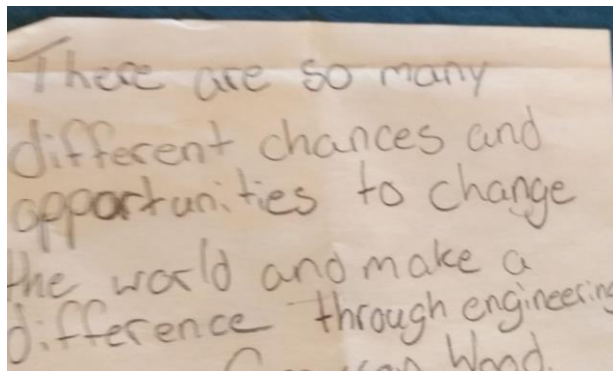 There are so many
different chances and
opportunities to change
the world and make a
difference through engineering
Wood